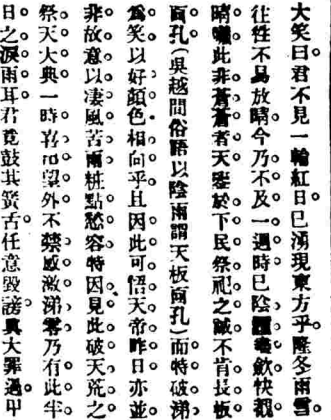 大笑曰君不見一輪紅日已湧現東方乎隆冬雨雪。
往往不易放晴今乃不及一週時已陰霾斂快覩
晴曦此非蒼蒼者天鑒於下民祭祀之誠不肯長板
面孔(吳越間俗語以陰雨謂天板面孔)而特破涕
爲笑以好顏色相向乎且因此可悟天帝昨日亦並
非故意以凄風苦雨粧點愁容特因見此破天荒之
祭天大典一時喜出望外不禁感激涕零乃有此半
日之淚雨耳君竟鼓其簧舌任意毀謗眞大罪過甲